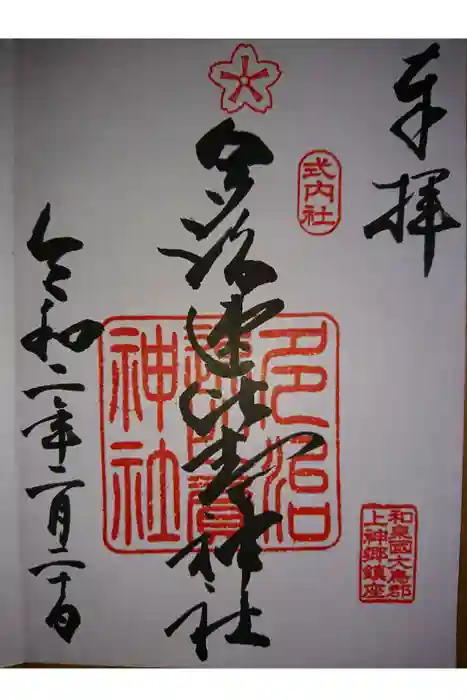 奉拝
式内社
多治速比売神社
多治
速比賣
神社
和泉國大鳥郡
上神郷鎮座
令和二年二月二十日